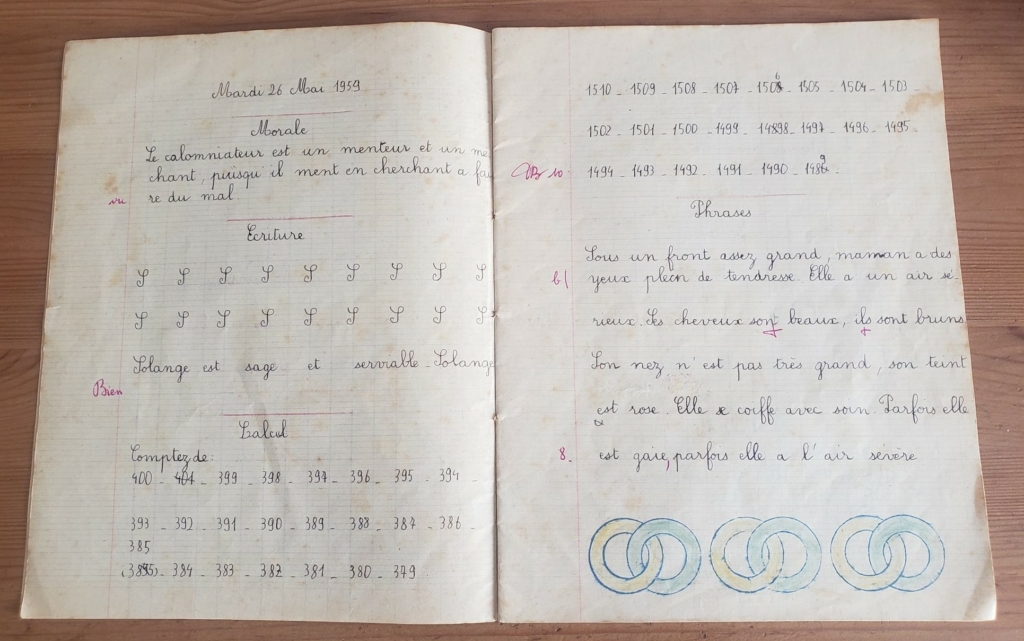 Mardi 26 Mai 1959
Morale
Le calomniateur est un menteur et un mé
chant, puisqu'il ment en cherchant a fai
re du mal
vu
Ecriture
S S S S S S S S S
S S S S S S S S S
Solange est sage et serviable. Solange
Bien
Calcul
Comptez de:
400 - 401 - 399 - 398 - 397 - 396 - 395 - 394 -
393 - 392 - 391 - 390 - 389 - 388 - 387 - 386 -
385
(385) - 384 - 383 - 382 - 381 - 380 - 379
1510 - 1509 - 1508 - 1507 - 1506 - 1505 - 1504 - 1503 -
1502 - 1501 - 1500 - 1499 - 1498 - 1497 - 1496 - 1495 -
TB 10 1494 - 1493 - 1492 - 1491 - 1490 - 1489.
Phrases
Sous un front assez grand, maman a des
b/ yeux plein de tendresse. Elle a un air sé-
rieux. Ses cheveux sont beaux, ils sont bruns
Son nez n'est pas très grand, son teint
est rose. Elle se coiffe avec soin. Parfois elle
8. est gaie, parfois elle a l'air sévère